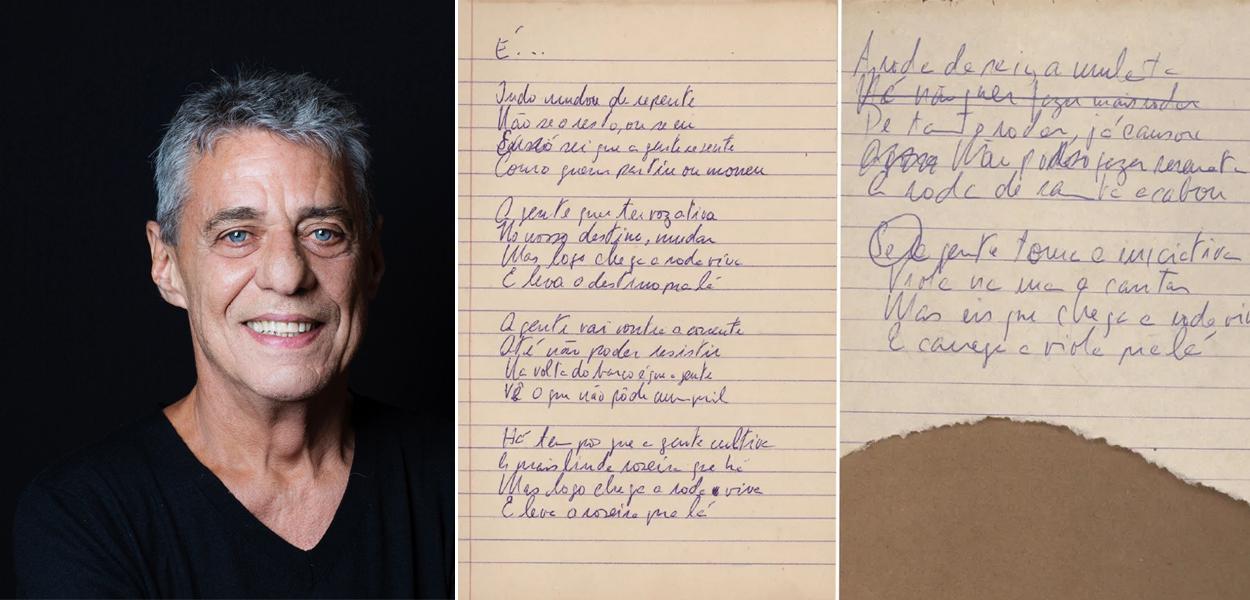 É...
Tudo mudou de repente
Não se o resto, ou se eu
só sei que a gente se sente
Como quem partiu ou morreu
A gente quer ter voz ativa
No nosso destino, mudar
Mas logo chega a roda viva
E leva o destino pra lá
A gente vai contra a corrente
Até não poder resistir
Na volta do barco é que a gente
Vê o que não pôde cumprir
Há tempo que a gente cultiva
A mais linda roseira que há
Mas logo chega a roda viva
E leva a roseira pra lá
A roda da saia, a mulata
não quer fazer mais rodar
De tanto rodar, já cansou
Não posso fazer serenata
A roda de samba acabou
A gente toma a iniciativa
Viola na rua a cantar
Mas eis que chega a roda viv
E carrega a viola pra lá